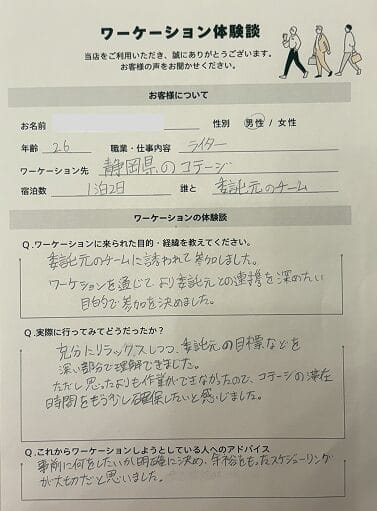 ワーケーション体験談
当店をご利用いただき、誠にありがとうございます。
お客様の声をお聞かせください。
お客様について
お名前 性別 男性 / 女性
年齢 26 職業・仕事内容 ライター
ワーケーション先 静岡県のコテージ
宿泊数 1泊2日 誰と 委託元のチーム
ワーケーションの体験談
Q.ワーケーションに来られた目的・経緯を教えてください。
委託元のチームに誘われて参加しました。
ワーケーションを通じて、より委託元との連携を深めたい
目的で参加を決めました。
Q.実際に行ってみてどうだったか？
充分にリラックスしつつ、委託元の目標などを
深い部分で理解できました。
ただし思ったよりも作業ができなかったので、コテージの滞在
時間をもう少し確保したいと感じました。
Q.これからワーケーションしようとしている人へのアドバイス
事前に何をしたいか明確に決め、余裕をもったスケジューリング
が大切だと思いました。